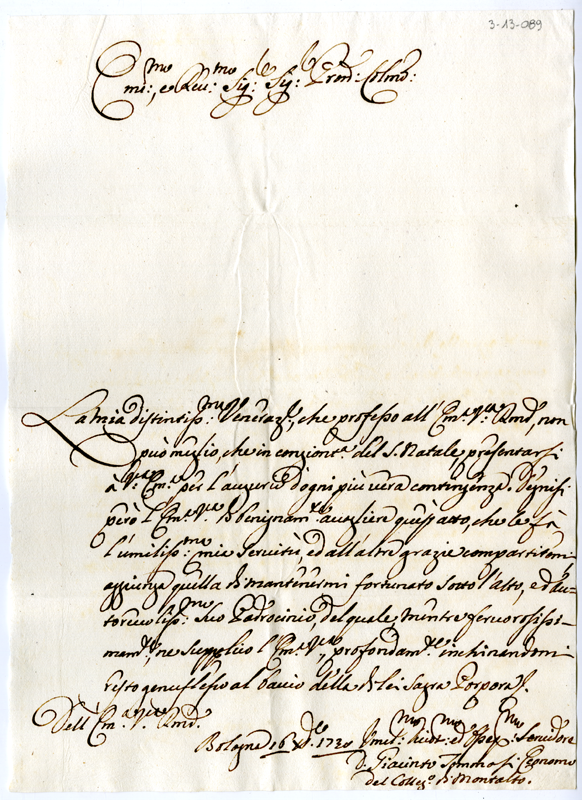 3-13-089
Em:mo, e Reu:mo Sig:e Sig:e Pron: Colmo:
La mia distintiss:ma Veneraz:e, che professo all' Em:a V:ra Rmd:, non
può meglio, che in congiont:a del S. Natale presentarsi
a V:ra Em:a per l'augurio d'ogni più vera contingenza. Degnisi
però l'Em:a V:ra di benignam:te accogliere quest'atto, che le fà
l'umiliss:ma mia Servitù, ed all'altre grazie compartitemi
aggiunga quella di mantenermi fortunato sotto l'alto, ed au-
toreuoliss:mo Suo Padrocinio, del quale mentre feruorosissi-
mam:te, ne supplico l'Em:a V:ra, profondam:te inchinandomi
resto genuflesso al bacio della di lei Sagra Porpora.
Dell' Em:a V:ra Rmd:
Bologna 16 Xb:e 1730 Vmil:mo diuot:mo ed ossequ:mo Seruidore
D. Giacinto Tommasi Economo
del Colleg:o di Montalto.